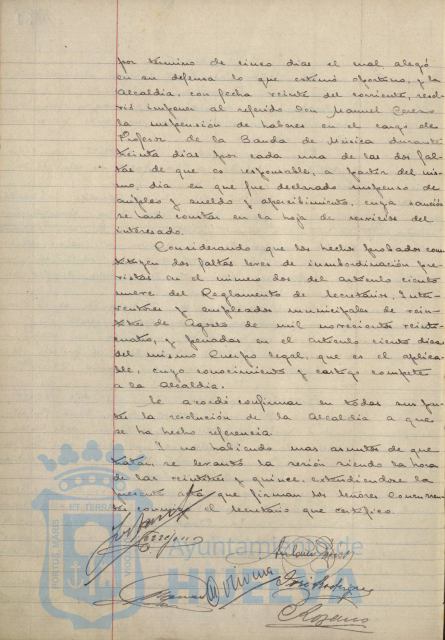 por término de cinco dias el cual alegó
en su defensa lo que estimó oportuno, y la
Alcaldía, con fecha veinte del corriente, resol-
vió imponer al referido Don Manuel Cerezo
la suspensión de haberes en el cargo de
Profesor de la Banda de Música durante
treinta dias por cada una de las dos fal-
tas de que es responsable, a partir del mis-
mo, dia en que fue declarado suspenso de
empleo y sueldo y apercibimiento, cuya sanción
se hará constar en la hoja de servicios del
interesado.
Considerando que los hechos probados cons-
tituyen dos faltas leves de insubordinación pre-
vistas en el número dos del artículo ciento
nueve del Reglamento de Secretarios, Inter-
ventores y empleados municipales de vein-
titres de Agosto de mil novecientos veinti-
cuatro, y penadas en el artículo ciento diez
del mismo Cuerpo legal, que es el aplica-
ble, cuyo conocimiento y castigo compete
a la Alcaldia.
Se acordó confirmar en todas sus par-
tes la resolución de la Alcaldia a que
se ha hecho referencia.
Y no habiendo mas asuntos de que
tratar se levantó la sesión siendo la hora
de las veintitres y quince, extendiendose la
presente acta que firman los señores concurren-
tes conmigo el Secretario que certifico.
PORTUS MARIS ET TERRAE
Ayuntamiento de
HUELVA
José Rodríguez